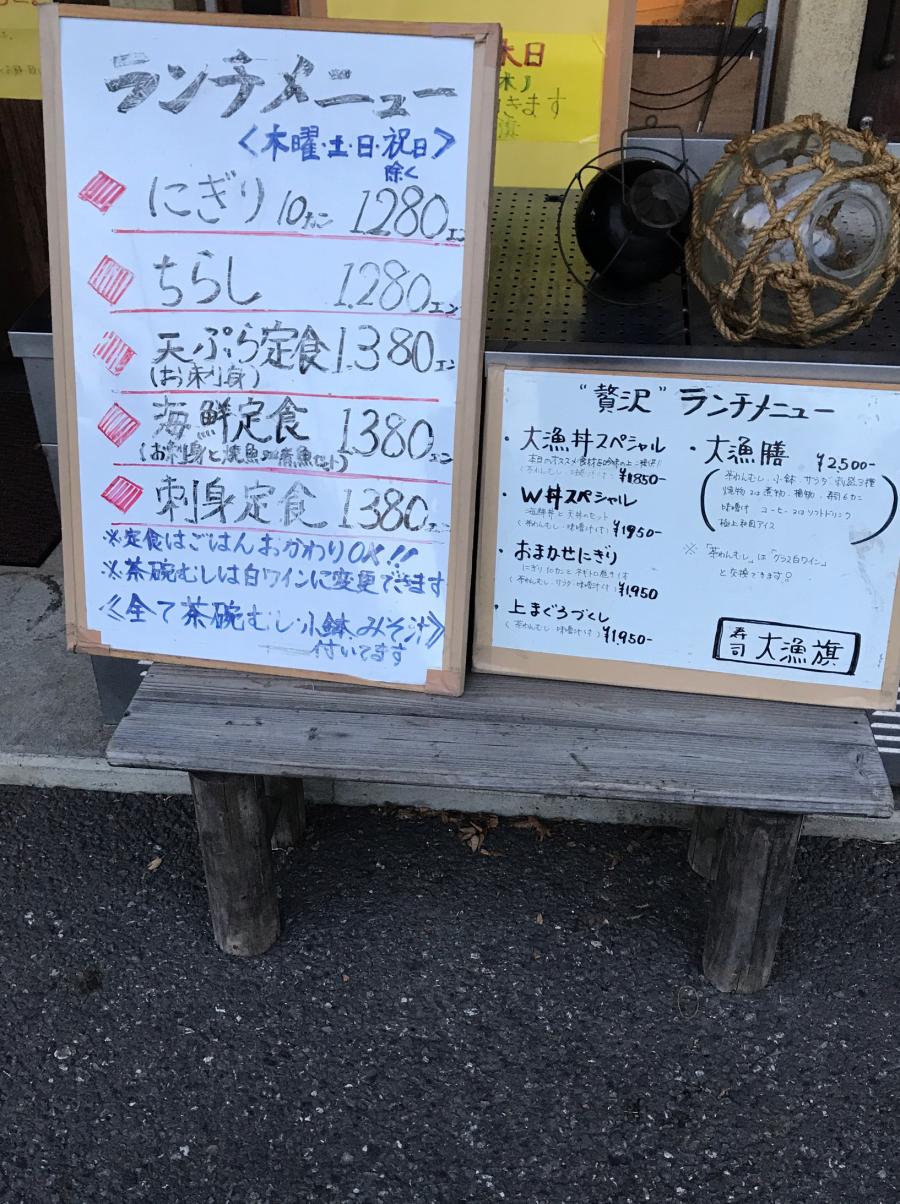 ランチメニュー
<木曜・土・日・祝日>
除く
にぎり 10カン 1280エン
ちらし 1280エン
天ぷら定食 1380エン
(お刺身)
海鮮定食 1380エン
(お刺身と焼魚or煮魚セット)
刺身定食 1380エン
※定食はごはんおかわりOK!!
※茶碗むしは白ワインに変更できます
《全て茶碗むし・小鉢みそ汁》
付いてます
休日
(木)
きます
"贅沢"ランチメニュー
・大漁丼スペシャル
¥1850-
・W丼スペシャル
海鮮丼と天丼のセット
(茶わんむし・味噌汁付) ¥1950-
・おまかせにぎり
にぎり10カンとネギトロ巻き付
(茶わんむし・サラダ・味噌汁付) ¥1,950
・上まぐろづくし
(茶わんむし・味噌汁付) ¥1950-
・大漁膳 ¥2500-
(茶わんむし、小鉢、サラダ、刺身3種
焼物又は煮物、揚物、寿司6カン
味噌汁 コーヒー又はソフトドリンク
極上和風アイス)
※「茶わんむし」は「グラス白ワイン」
と交換できます。
寿司 大漁旗